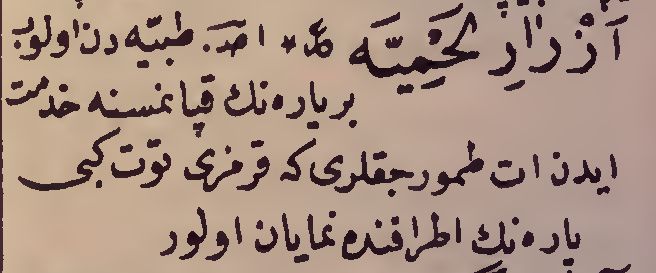 اَزْرَارِ لَحْمِيَّه عد* اصد. طبيّه دن اولوب
بر ياره نك قپانمسنه خدمت
ايدن ات طمورجقلرى كه قرمزى توت كبى
ياره نك اطرافنده نمايان اولور